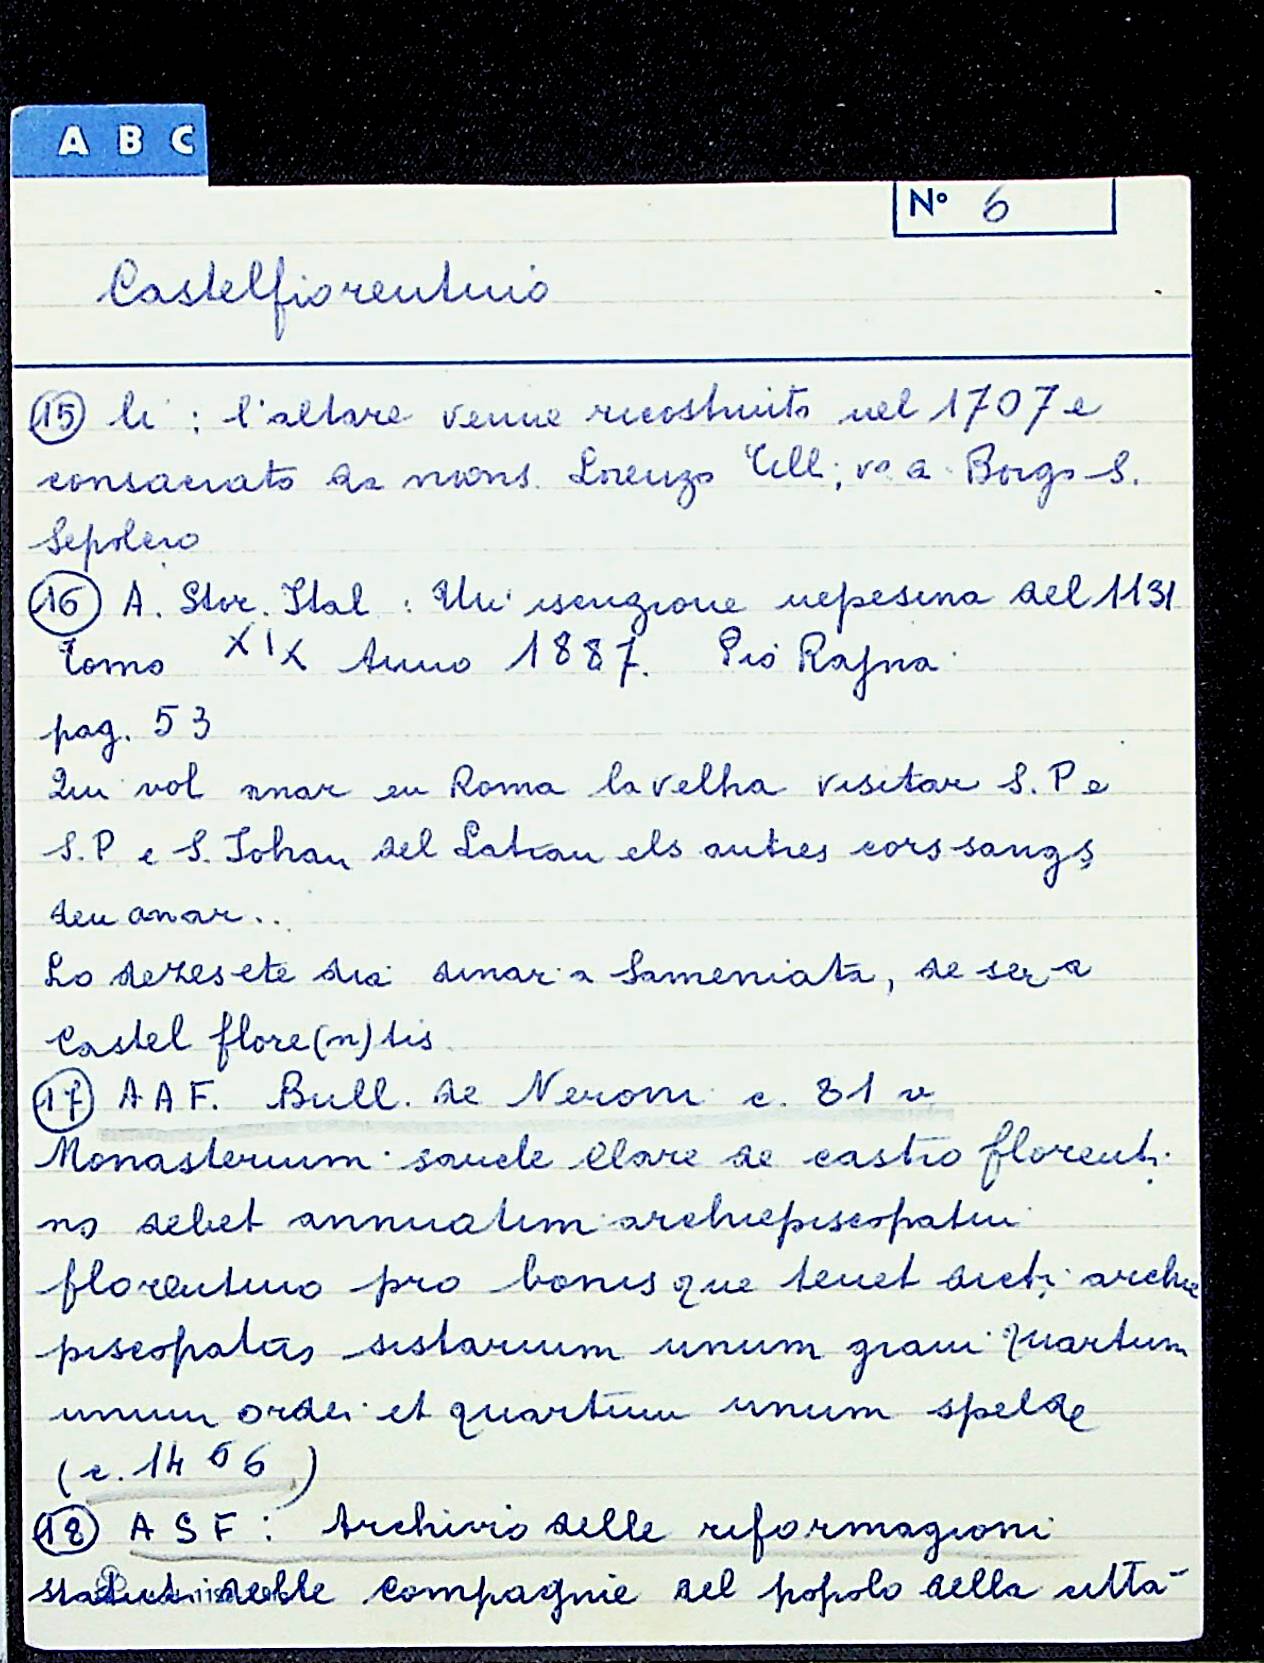 A B C
N° 6
Castelfiorentino
15 li : l'altare venne ricostruito nel 1707 e
consacrato da mons. Lorenzo Tilli; v. a Borgo S.
Sepolcro
16 A. Stor. Ital : Un' iscrizione nepesina del 1131
Tomo XIX Anno 1887. Pio Rajna
pag. 53
Qui vol anar en Roma la velha visitar S. P e
S. P e S. Johan del Latran els autres cors sangs
deu anar..
Lo dezesete dia dinar a Sameniata, de ser a
Castel flore(n)tis
17 A A F. Bull. de Neroni c. 81 v
Monasterium sancte Clare de castro florenti
no debet annuatim archiepiscopatui
florentino pro bonis que tenet dicti archie
piscopatus sistarium unum grani quartum
unum ordei et quartum unum spelde
(c. 1466)
18 A S F : Archivio delle riformagioni
statuti delle compagnie del popolo della città